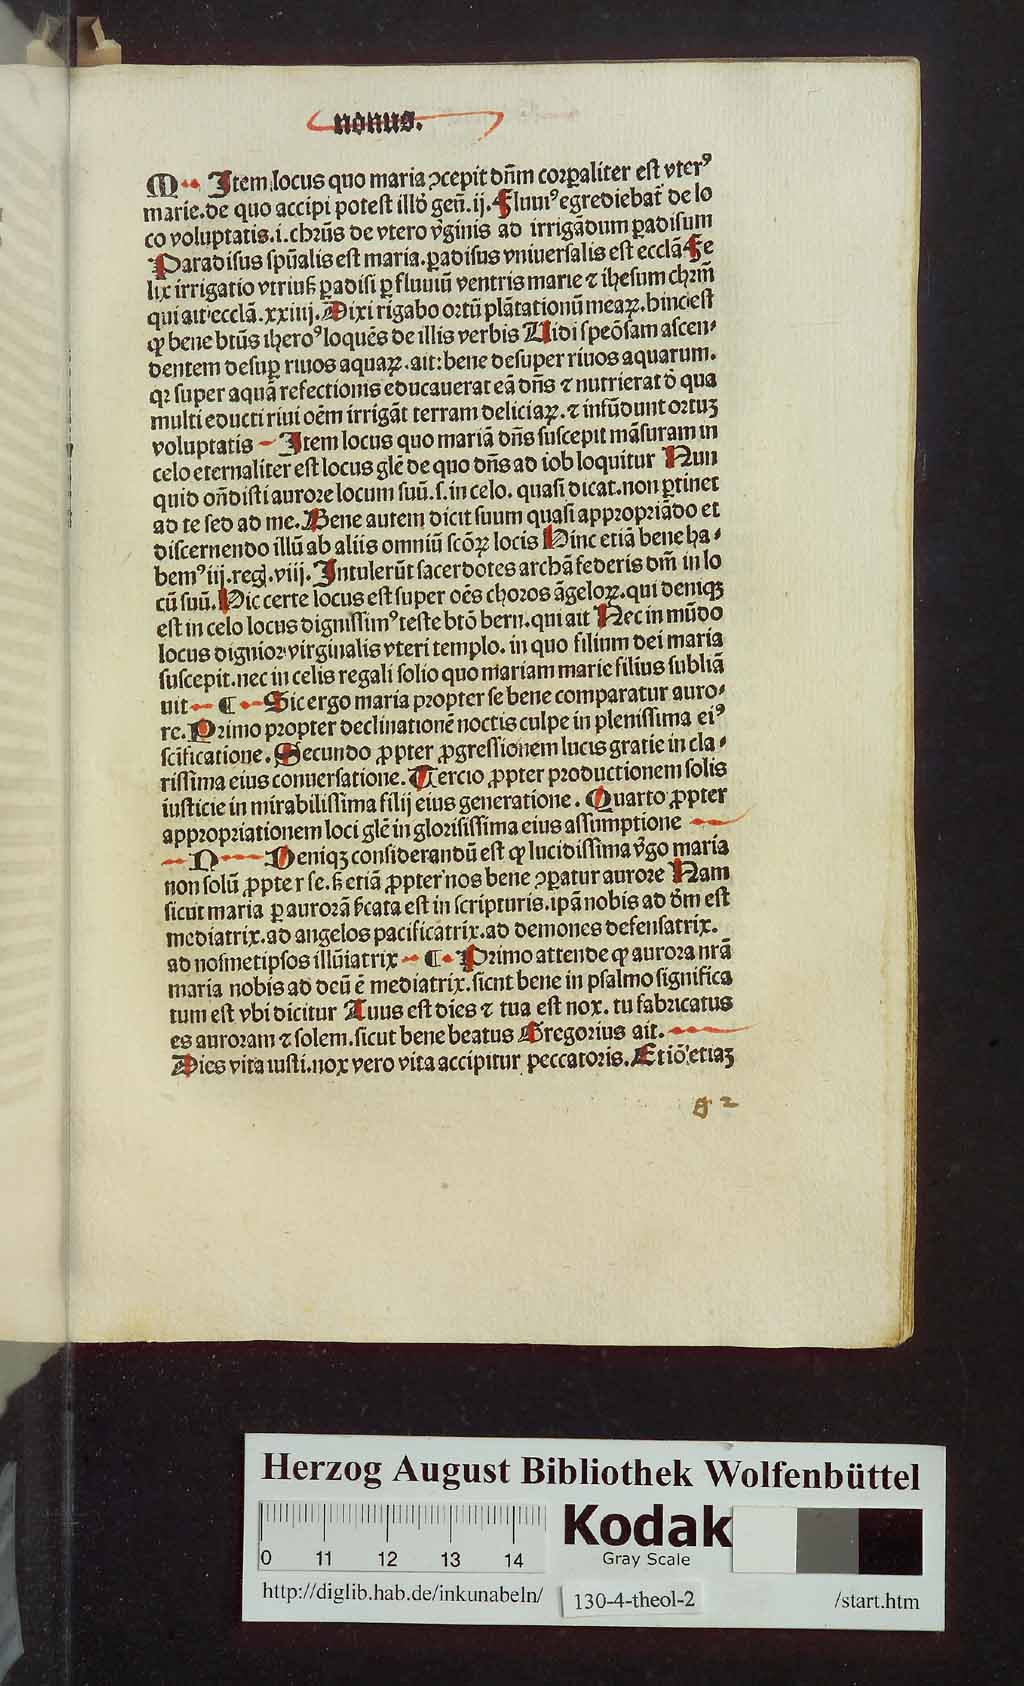 nonus.
M Item locus quo maria ↄcepit dn̄m corꝑaliter est vterꝰ
marie. de quo accipi potest illḋ gen̄. ij. Fluuiꝰ egrediebat̉ de lo
co voluptatis. i. chrūs de vtero v̓ginis ad irrigādum ꝑadisum
Paradisus spūalis est maria. ꝑadisus vniuersalis est ecclā Fe
lix irrigatio vtriusꝫ ꝑadisi ꝑ fluuiū ventris marie ⁊ ihesum chrm̄
qui ait ecclā. xxiiij. Dixi rigabo ortū plātationū meaꝝ. hinc est
ꝙ bene btūs iheroꝰ loquēs de illis verbis Uidi speōsam ascen⸗
dentem desuꝑ riuos aquaꝝ. ait: bene desuper riuos aquarum.
qꝛ super aquā refectionis educauerat eā dn̄s ⁊ nutrierat d̓ qua
multi educti riui oēm irrigāt terram deliciaꝝ. ⁊ infūdunt ortuꝫ
voluptatis Item locus quo mariā dn̄s suscepit māsuram in
celo eternaliter est locus glē de quo dn̄s ad iob loquitur Nun
quid on̄disti aurore locum suū. s. in celo. quasi dicat. non ꝑtinet
ad te sed ad me. Bene autem dicit suum quasi appropriādo et
discernendo illū ab aliis omniū scōꝝ locis Hinc etiā bene ha⸗
bemꝰ iij. reg. viij. Intulerūt sacerdotes archā federis dn̄i in lo
cū suū. Hic certe locus est super oēs choros āgeloꝝ. qui deniqꝫ
est in celo locus dignissimꝰ teste btō bern. qui ait Nec in mūdo
locus dignior virginalis vteri templo. in quo filium dei maria
suscepit. nec in celis regali solio quo mariam marie filius sublia
uit ¶ Sic ergo maria propter se bene comparatur auro⸗
re. Primo propter declinationē noctis culpe in plenissima eiꝰ
scificatione. Secundo ꝓpter ꝓgressionem lucis gratie in cla⸗
rissima eius conuersatione. Tercio ꝓpter productionem solis
iusticie in mirabilissima filij eius generatione. Quarto ꝓpter
appropriationem loci glē in glorisissima eius assumptione
N Deniqꝫ considerandū est ꝙ lucidissima v̓go maria
non solū ꝓpter se. sꝫ etiā ꝓpter nos bene ↄꝑatur aurore Nam
sicut maria ꝑ aurorā sīcata est in scripturis. ipā nobis ad dm̄ est
mediatrix. ad angelos pacificatrix. ad demones defensatrix.
ad nosmetipsos illūiatrix ¶ Primo attende ꝙ aurora nr̄a
maria nobis ad deū ē mediatrix. sicnt bene in psalmo significa
tum est vbi dicitur Tuus est dies ⁊ tua est nox. tu fabricatus
es auroram ⁊ solem. sicut bene beatus Gregorius ait.
Dies vita iusti. nox vero vita accipitur peccatoris. Etiō etiaꝫ
g 2
Herzog August Bibliothek Wolfenbüttel
0 11 12 13 14
Kodak
Gray Scale
http://diglib.hab.de/inkunabeln/ 130-4-theol-2 /start.htm